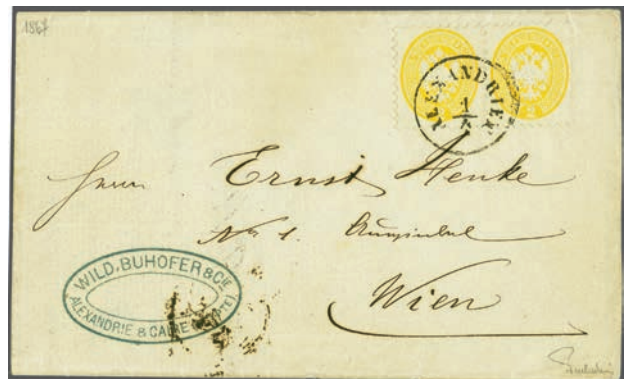 1867
ALEXANDRIEN
1/5
Herrn Ernst Henke
No 1.
Wien
WILD, BUHOFER & CIE
ALEXANDRIE & CAIRE